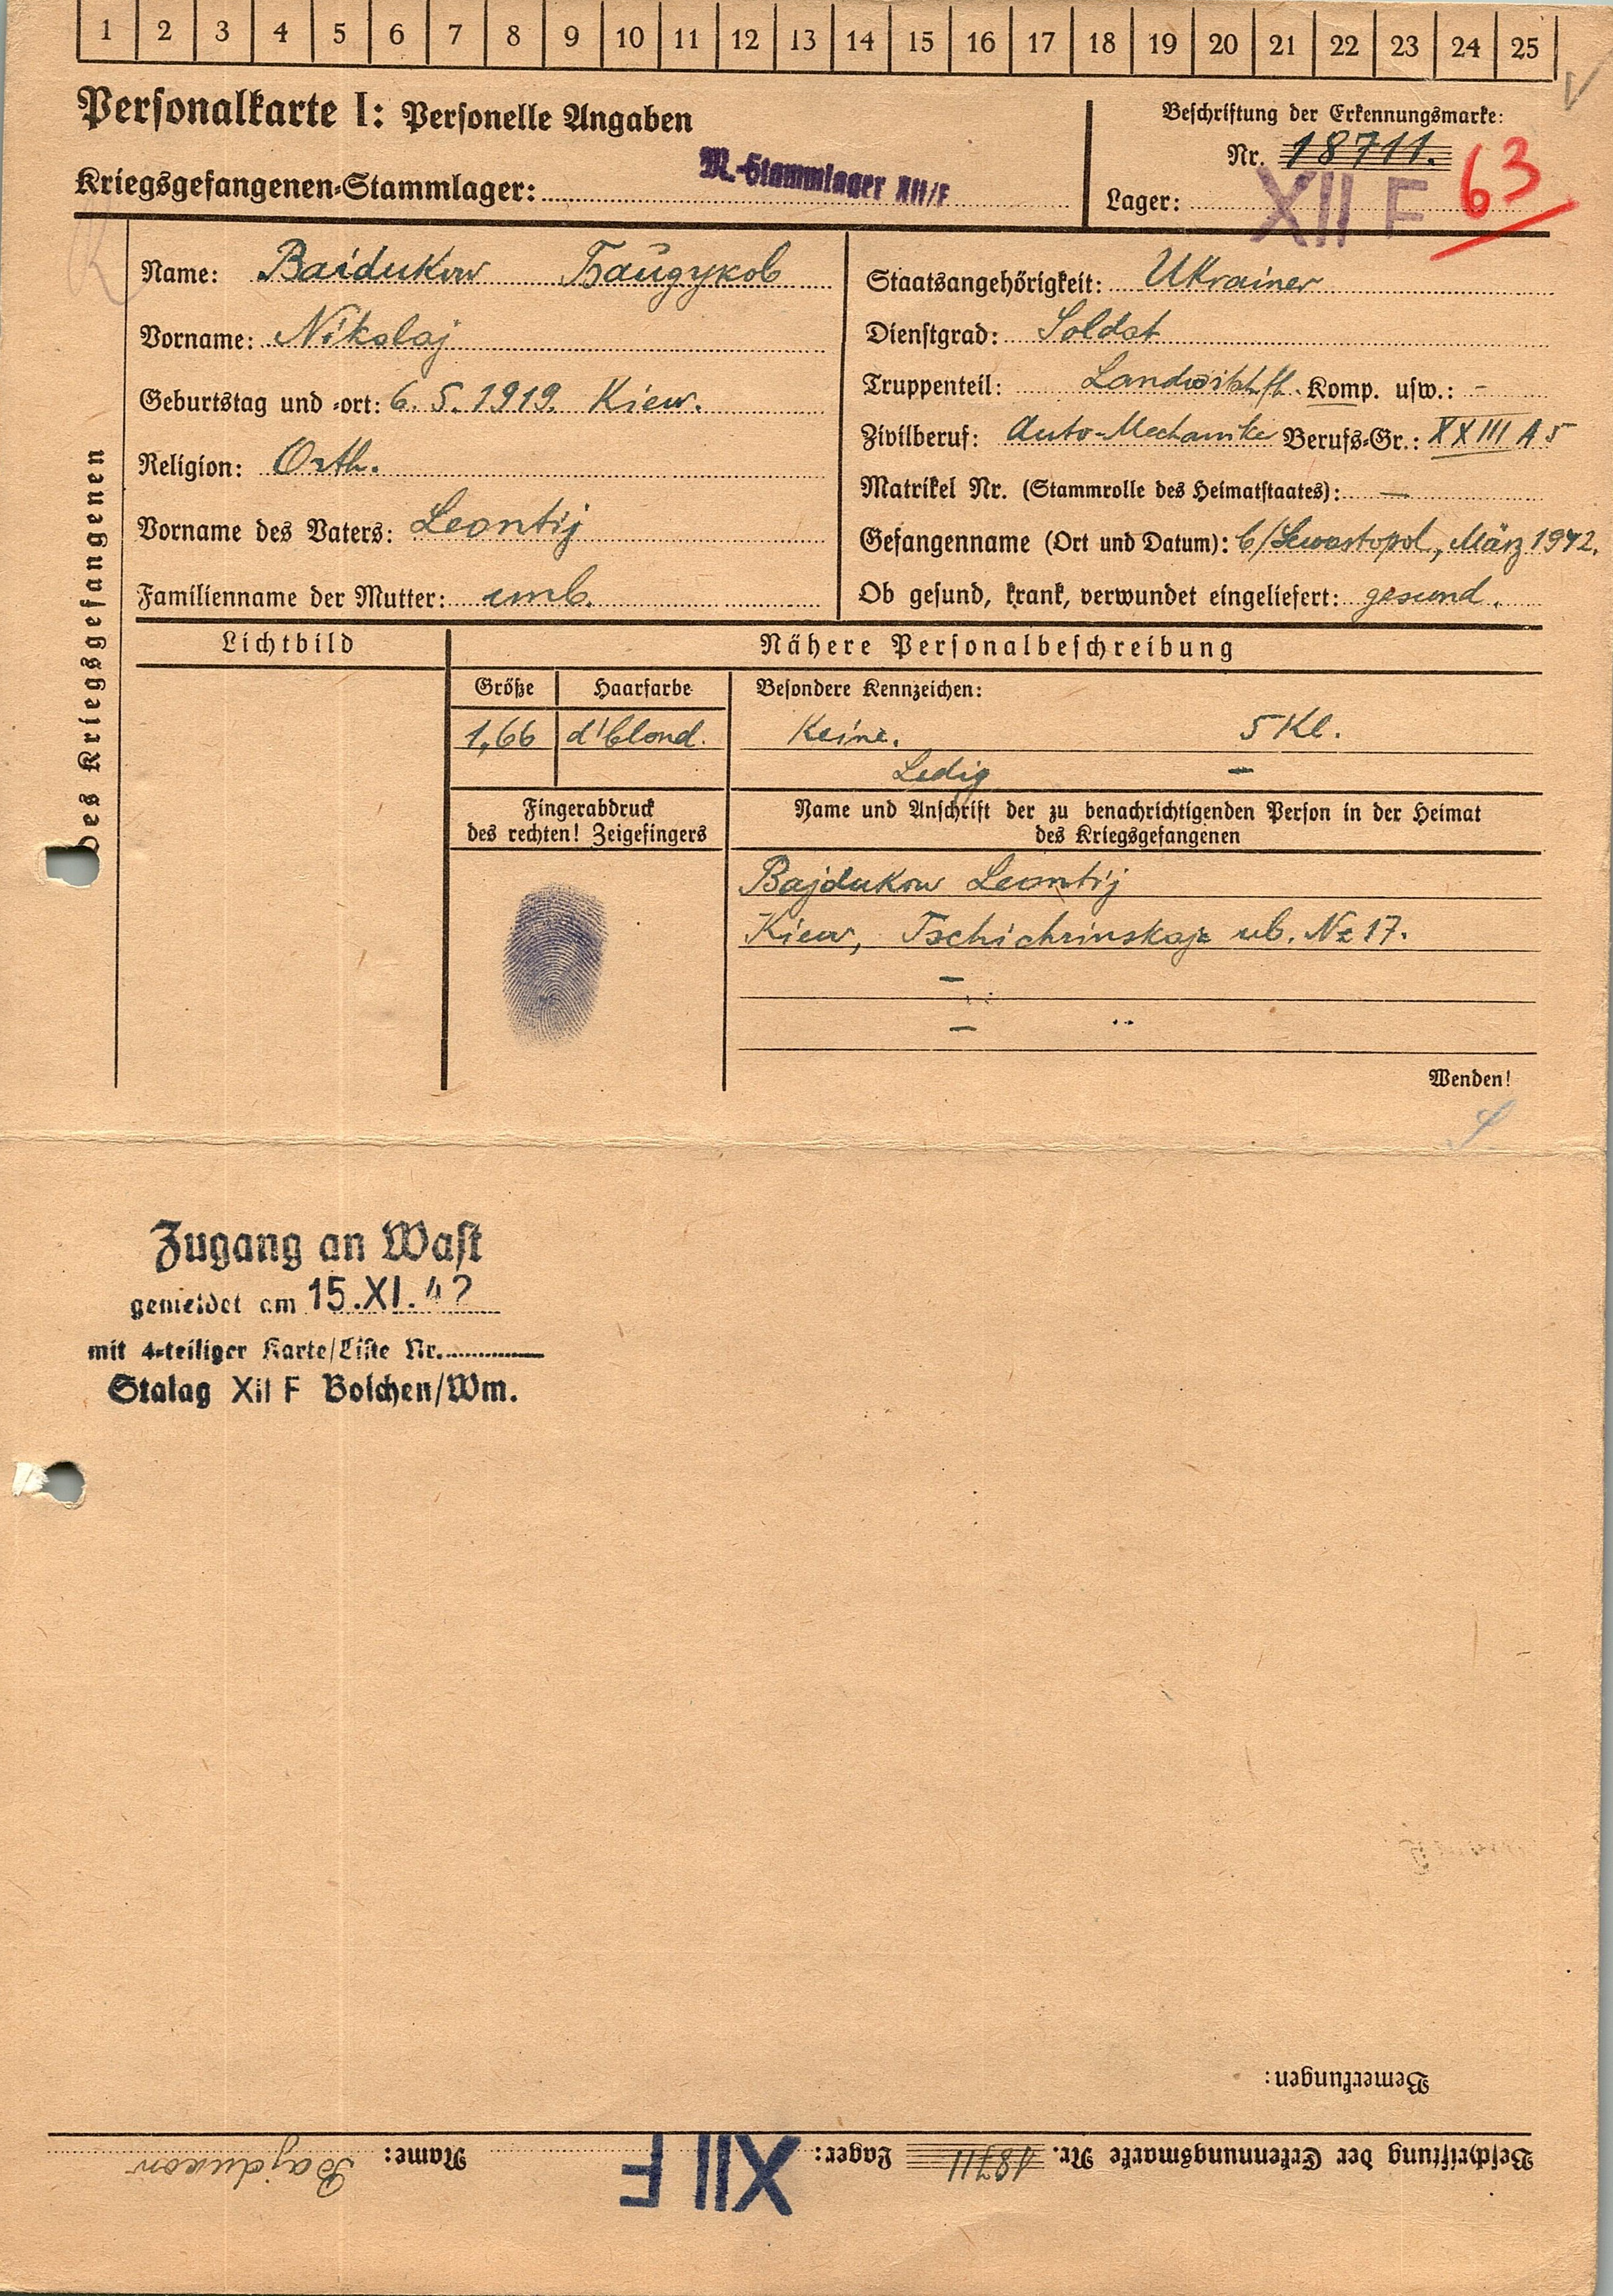 1 2 3 4 5 6 7 8 9 10 11 12 13 14 15 16 17 18 19 20 21 22 23 24 25
Personalkarte I: Personelle Angaben
Kriegsgefangenen-Stammlager: M.-Stammlager XII/F
Beschriftung der Erkennungsmarke:
Nr. 18711.
Lager: XII F 63
des Kriegsgefangenen
Name: Baidukow Байдуков
Vorname: Nikolaj
Geburtstag und -ort: 6. 5. 1919. Kiew.
Religion: Orth.
Vorname des Vaters: Leontij
Familienname der Mutter: unb.
Staatsangehörigkeit: Ukrainer
Dienstgrad: Soldat
Truppenteil: Komp. usw.: -
Zivilberuf: Auto-Mechanike Berufs-Gr.: XXIII A 5
Matrikel Nr. (Stammrolle des Heimatstaates): —
Gefangenname (Ort und Datum): b/Sewastopol, März 1942.
Ob gesund, krank, verwundet eingeliefert: gesund.
Lichtbild
Nähere Personalbeschreibung
Größe Haarfarbe Besondere Kennzeichen:
1,66 d'blond. Keine. 5 Kl.
Ledig —
Fingerabdruck
des rechten! Zeigefingers
Name und Anschrift der zu benachrichtigenden Person in der Heimat
des Kriegsgefangenen
Bajdukow Leontij
Kiew, Tschichrinskaja ul. № 17.
—
—
Wenden!
Zugang an Wast
gemeldet am 15.XI.42
mit 4-teiliger Karte/Liste Nr.
Stalag XII F Bolchen/Wm.
Bemerkungen:
Beschriftung der Erkennungsmarke Nr. 18711 Lager: XII F Name: Bajdukow